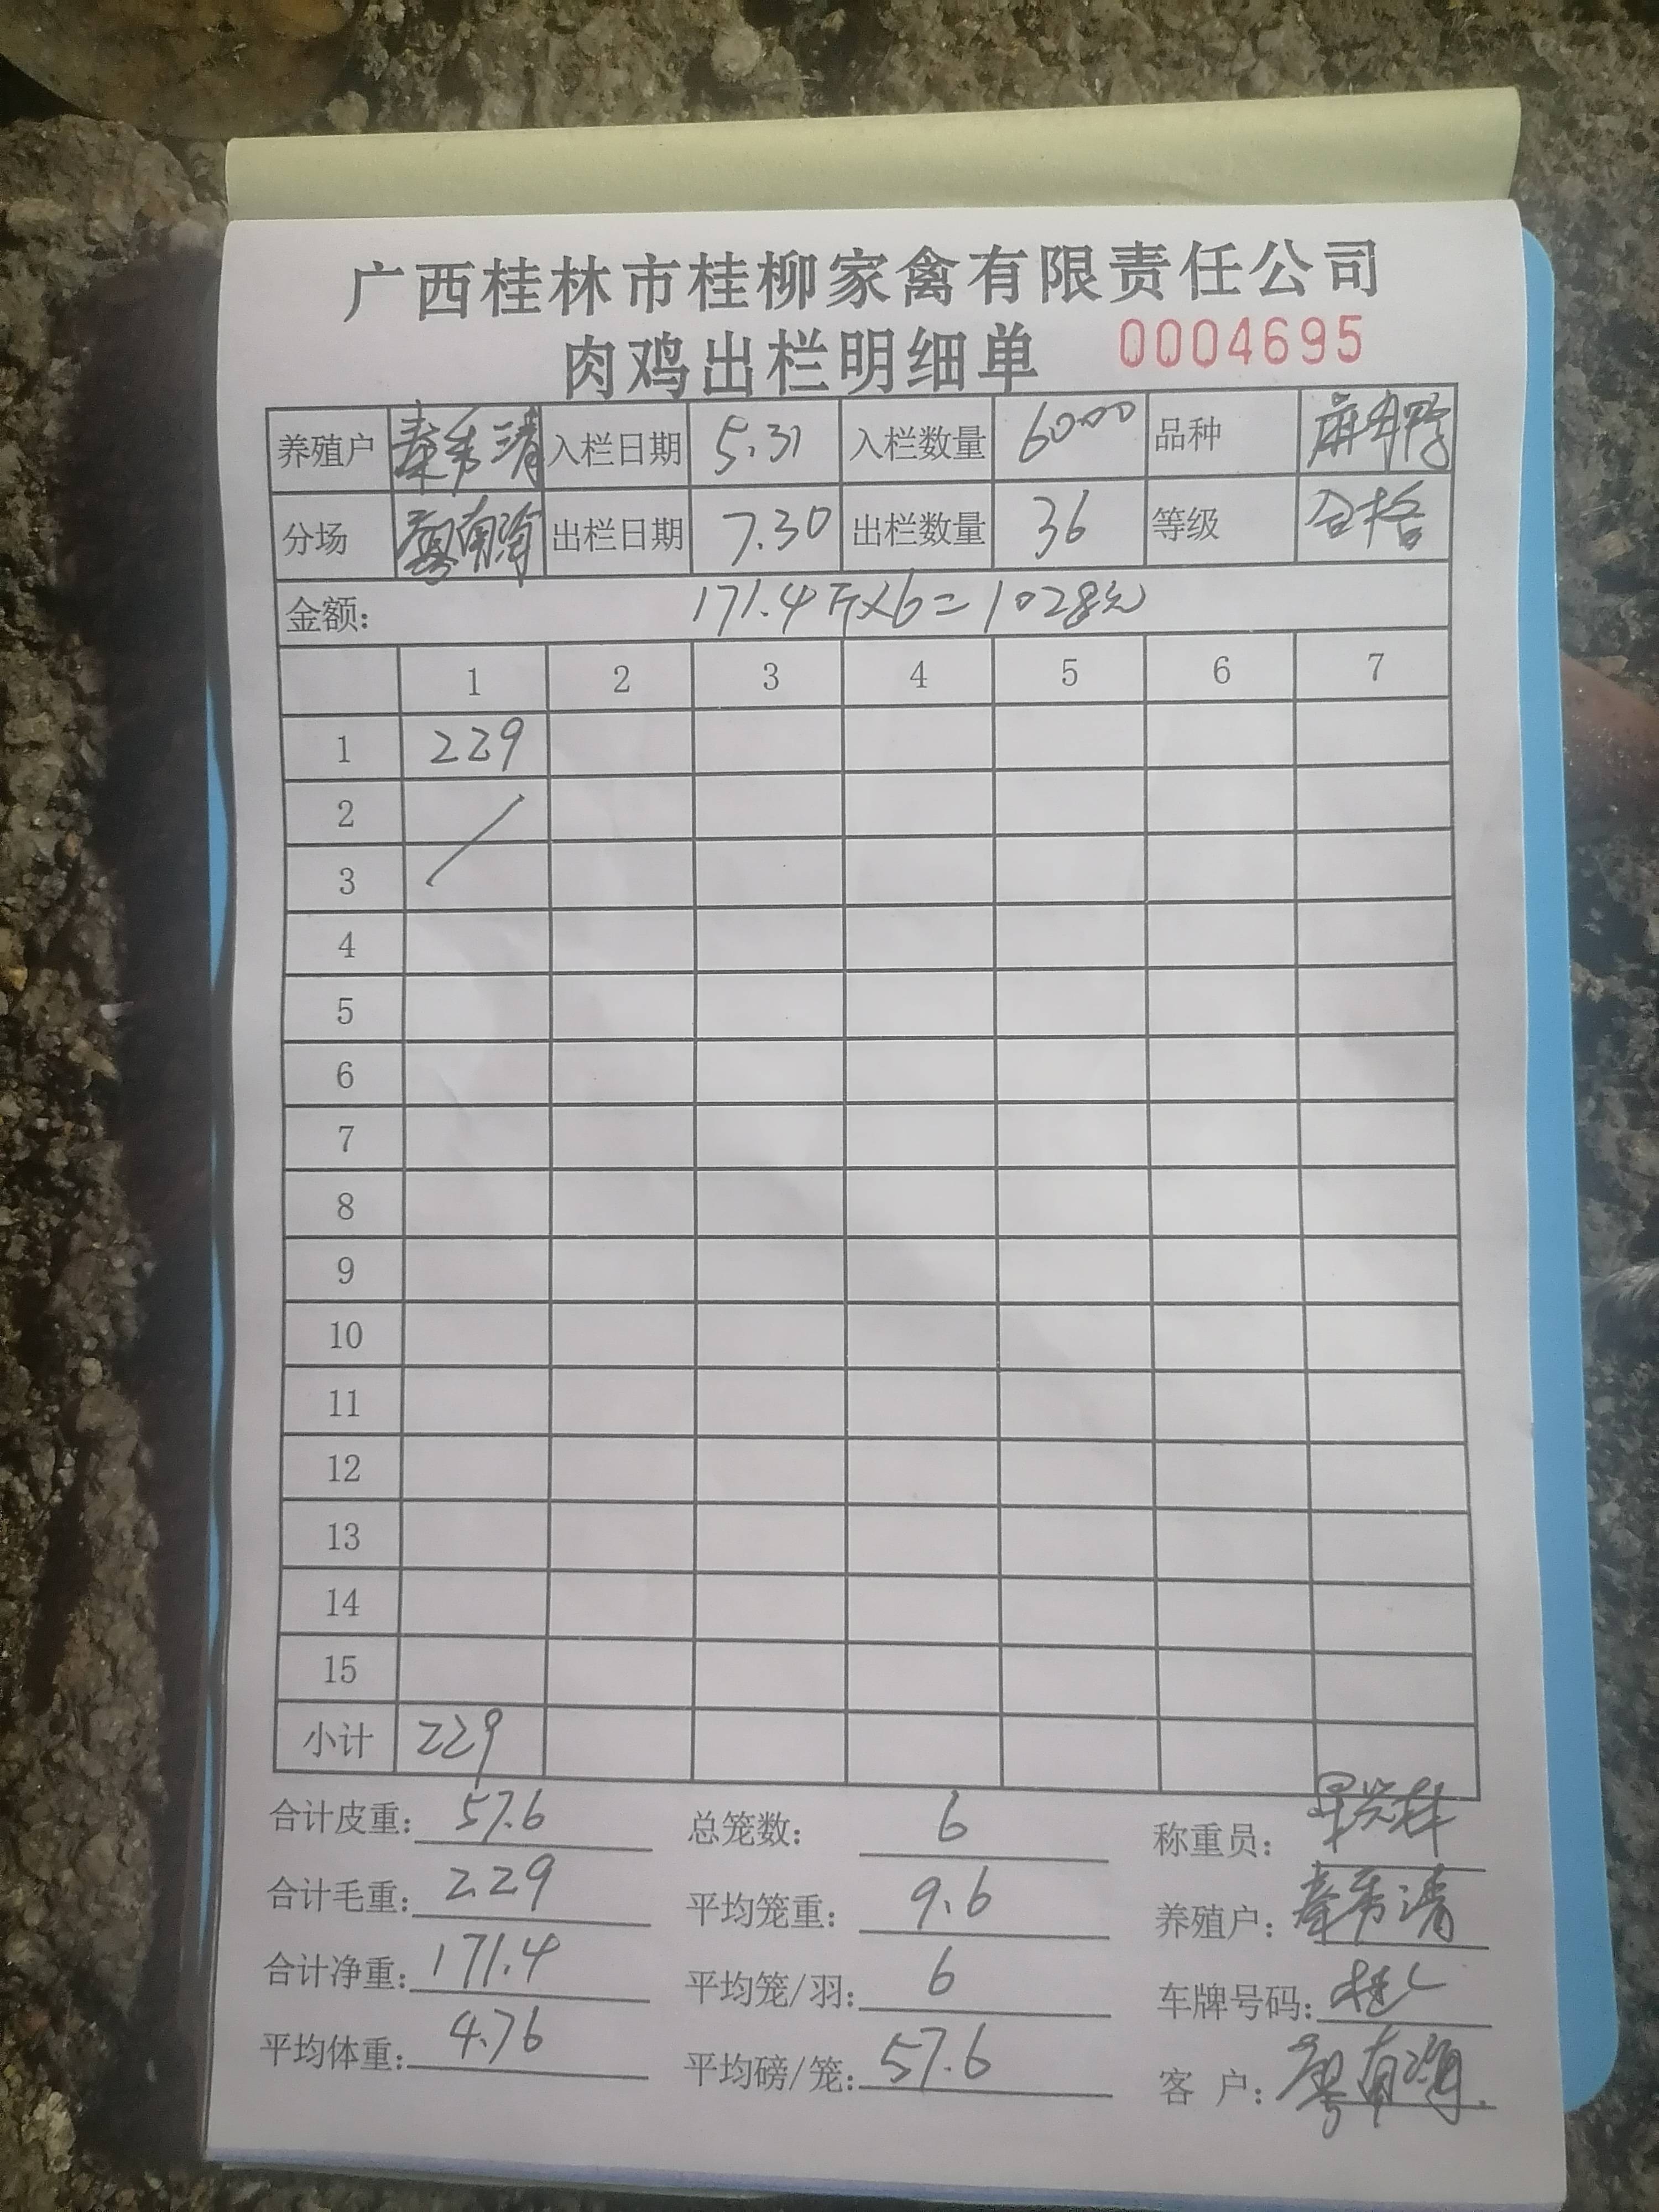 广西桂林市桂柳家禽有限责任公司
肉鸡出栏明细单 0004695
养殖户 秦秀清 入栏日期 5.31 入栏数量 6000 品种
分场 出栏日期 7.30 出栏数量 36 等级 合格
金额: 171.4斤×6=1028元
1 2 3 4 5 6 7
1 229
2
3
4
5
6
7
8
9
10
11
12
13
14
15
小计 229
合计皮重: 57.6 总笼数: 6 称重员:
合计毛重: 229 平均笼重: 9.6 养殖户: 秦秀清
合计净重: 171.4 平均笼/羽: 6 车牌号码: 桂
平均体重: 4.76 平均磅/笼: 57.6 客 户: